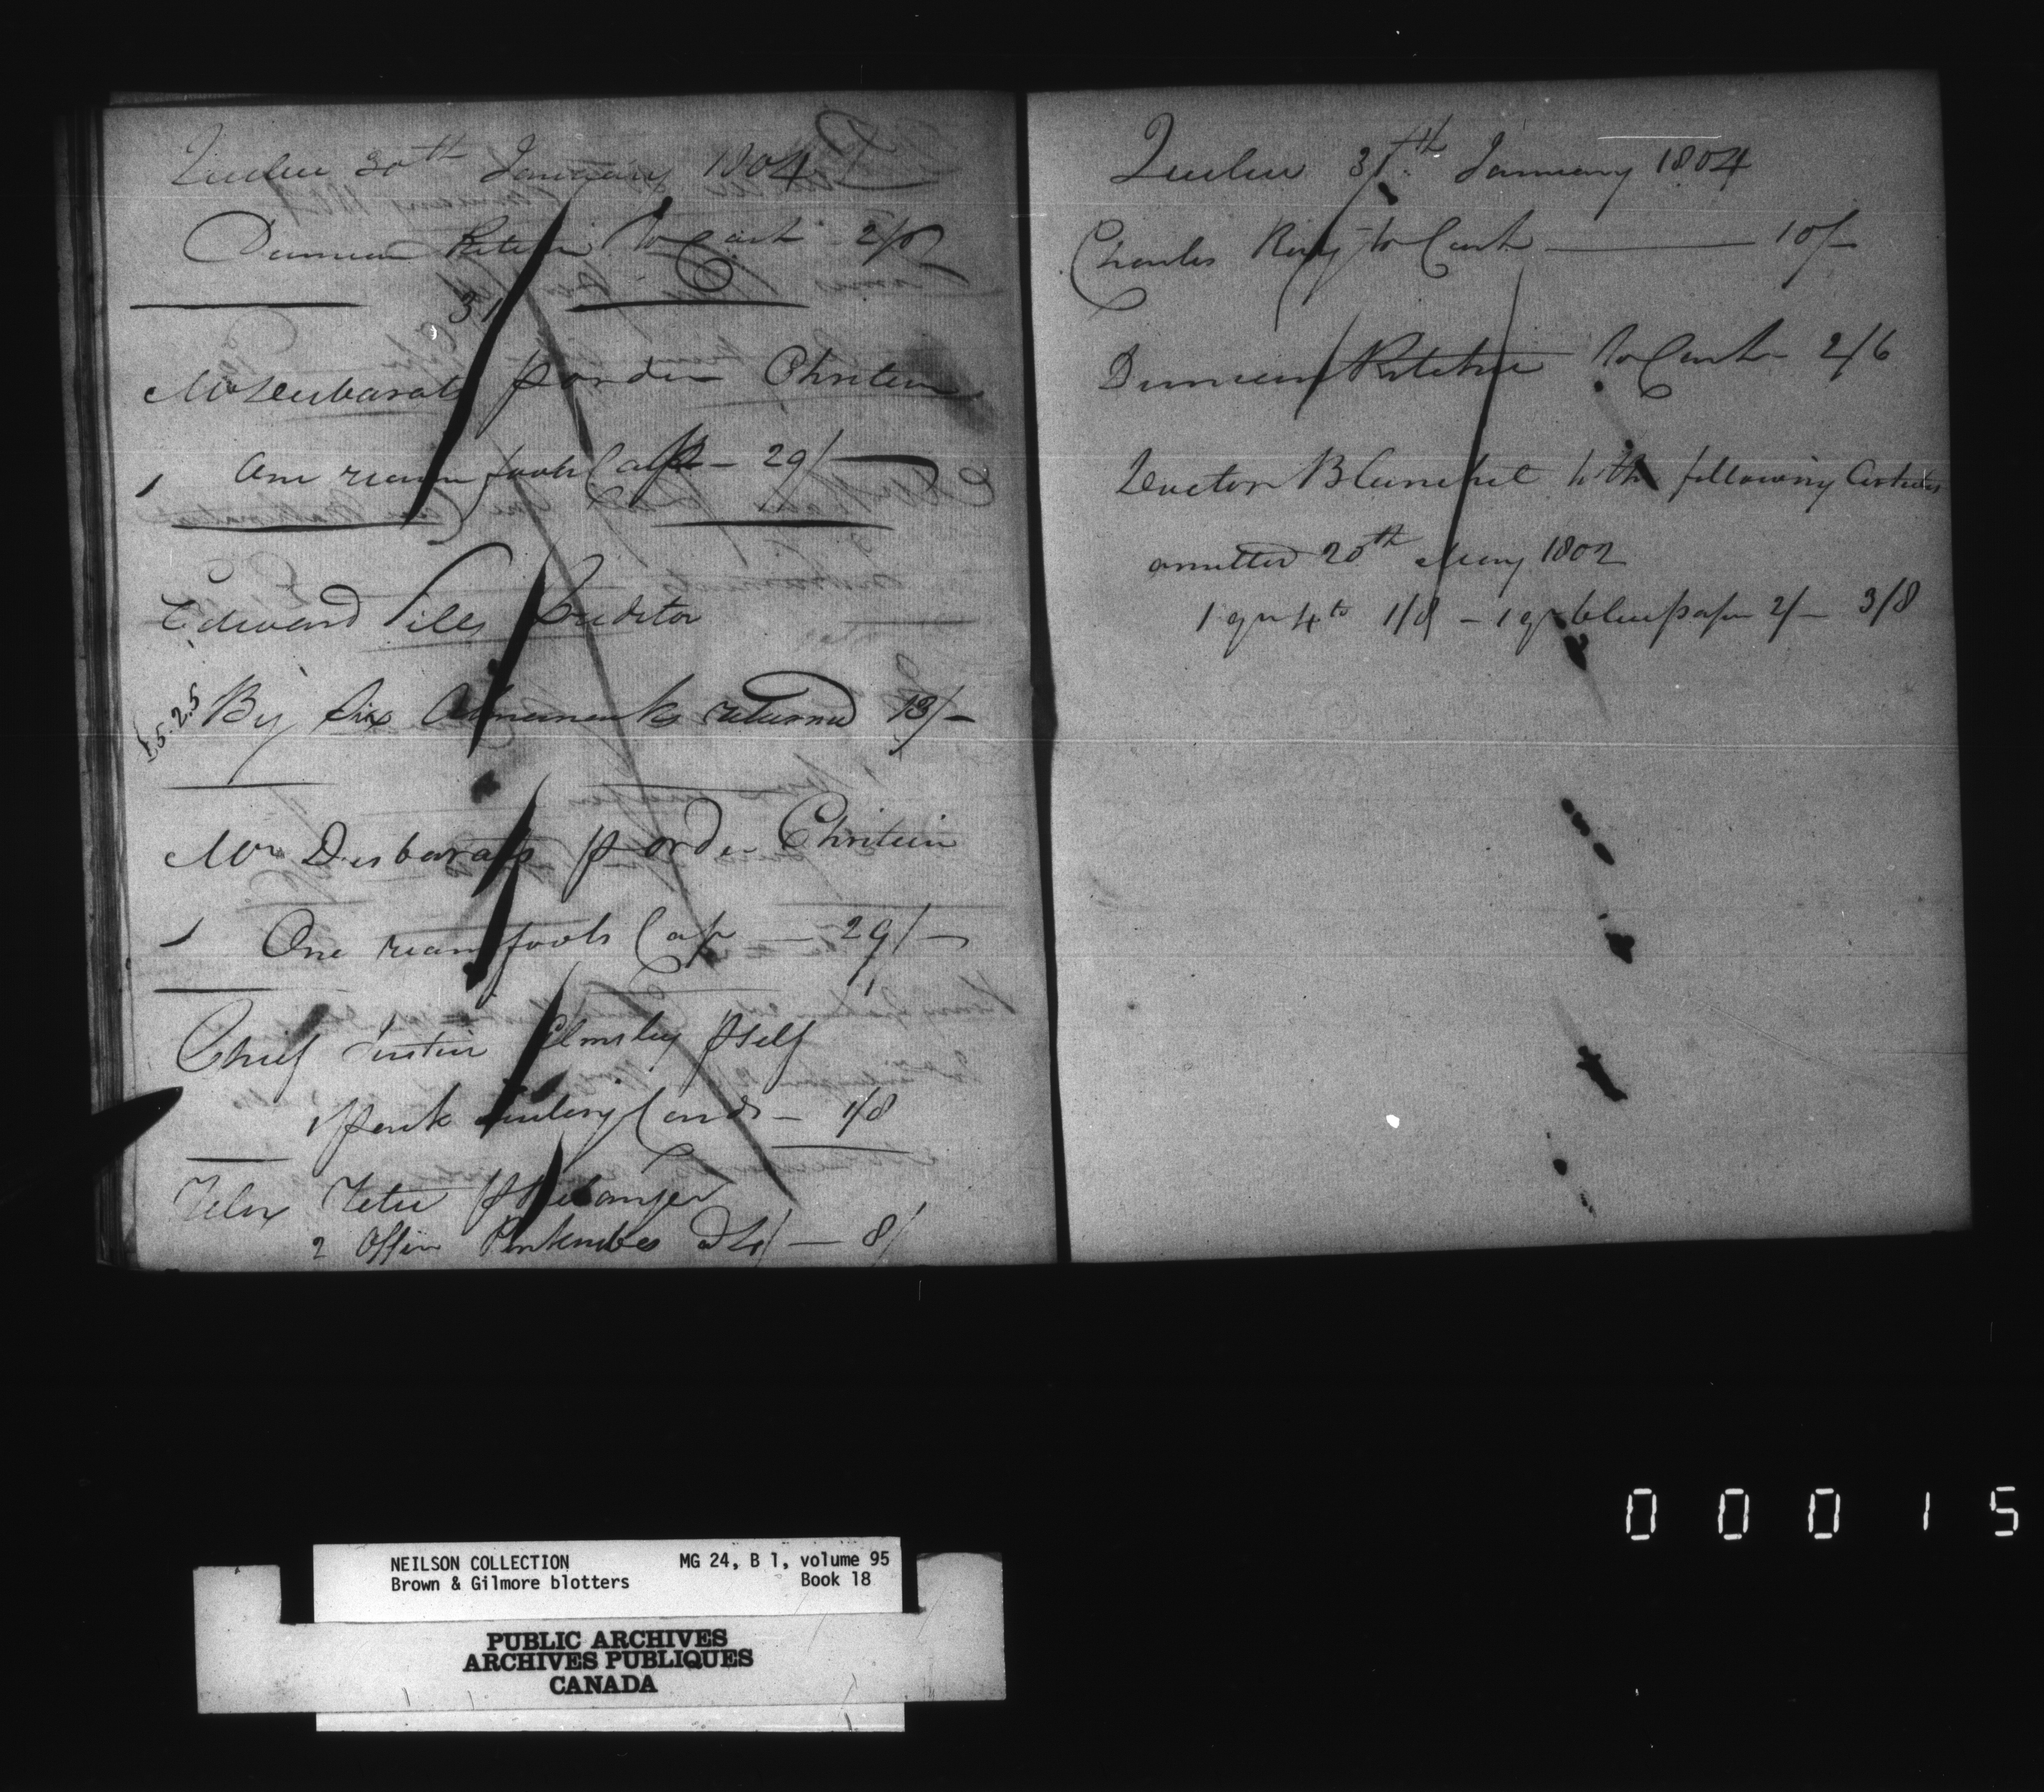 Quebec 30th January 1804
Duncan Ritchie To Cash 2/6
31
Mr Desbarats p order Chritein
1 One ream fools Cap - 29/-
Edward Sills Creditor
£5.2.5 By Six Almanacks returned 13/-
Mr Desbarats p order Chritein
1 One ream fools Cap - 29/-
Chief Justice Elmsley p self
1 pack Cards - 1/8
Felix Tetu p Belanger
2 Office Penknives @ 4/ - 8/
Quebec 31th January 1804
Charles Roy to Cash 10/-
Duncan Ritchie To Cash 2/6
Doctor Blanchet to the following Articles
omitted 20th May 1802
1 qr 4to 1/8 - 1 qr blue paper 2/- 3/8
0 0 0 1 5
NEILSON COLLECTION MG 24, B 1, volume 95
Brown & Gilmore blotters Book 18
PUBLIC ARCHIVES
ARCHIVES PUBLIQUES
CANADA